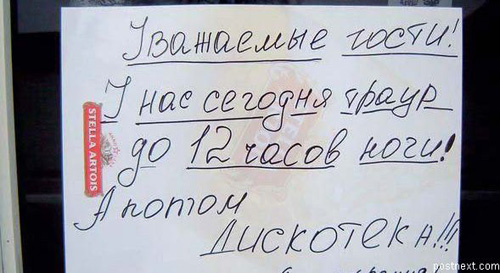 Уважаемые гости!
У нас сегодня траур
до 12 часов ночи!
А потом
Дискотека!!!
STELLA ARTOIS
postnext.com